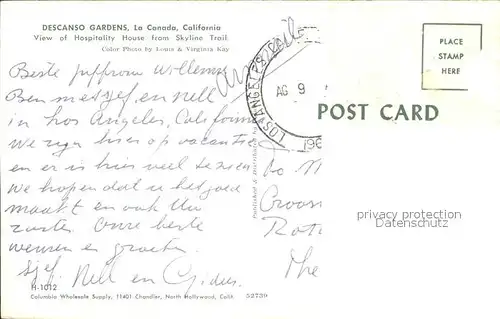 DESCANSO GARDENS, La Canada, California
View of Hospitality House from Skyline Trail
Color Photo by Louis & Virginia Kay
PLACE
STAMP
HERE
LOS ANGELES
AG 9
196
POST CARD
Beste juffrouw Willems
Ben met Sjef en nell
in Los Angeles, California
We zijn hier op vacantie
en er is hier veel te zien
We hopen dat u het goed
maakt en ook Uw
zuster. Onze beste
wensen en groeten.
Sjef, Nell en
Published & Distributed by
The
privacy protection
Datenschutz
H-1012
Columbia Wholesale Supply, 11401 Chandler, North Hollywood, Calif. 52739